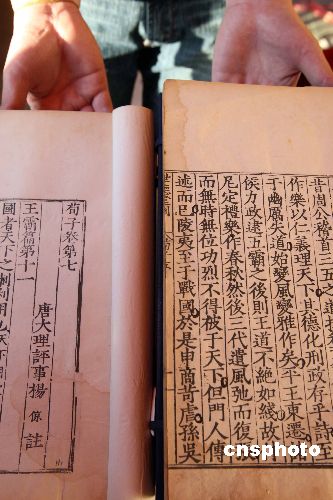 昔周公稽古三
作樂以仁義理天下其德化刑政存乎詩
于幽厲失道始變風變雅作矣平王東遷諸
侯力政逮五霸之後則王道不絕如綫故仲
尼定禮樂作春秋然後三代遺風弛而復張
而無時無位功烈不得被于天下但門人傳
述而已陵夷至于戰國於是申商苛虐孫吳
荀子卷第七
唐大理評事楊 倞 註
王霸篇第十一
國者天下之制利用也
cnsphoto